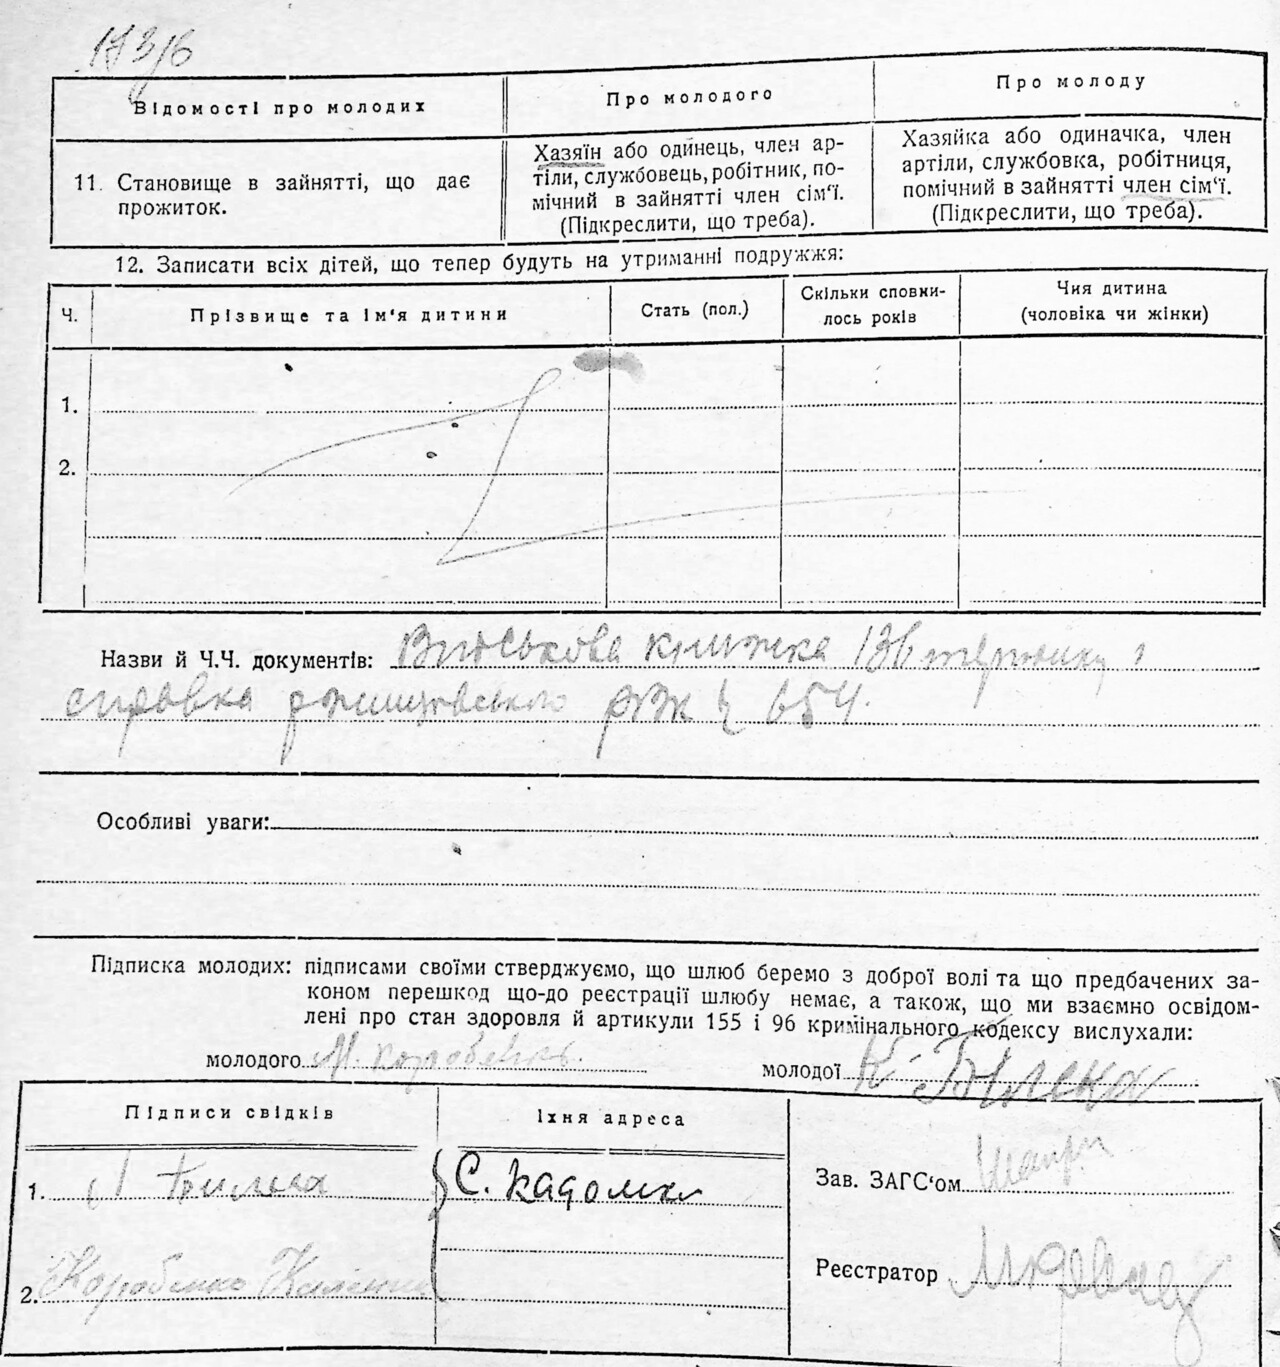 173/6
Відомості про молодих
Про молодого
Про молоду
11. Становище в зайнятті, що дає
прожиток.
Хазяїн або одинець, член ар-
тіли, службовець, робітник, по-
мічний в зайнятті член сім‘ї.
(Підкреслити, що треба).
Хазяйка або одиначка, член
артіли, службовка, робітниця,
помічний в зайнятті член сім‘ї.
(Підкреслити, що треба).
12. Записати всіх дітей, що тепер будуть на утриманні подружжя:
Ч.
Прізвище та ім‘я дитини
Стать (пол.)
Скільки сповни-
лось років
Чия дитина
(чоловіка чи жінки)
1.
2.
Назви й Ч.Ч. документів: Військова книжка 136
справка РВК 654.
Особливі уваги:
Підписка молодих: підписами своїми стверджуємо, що шлюб беремо з доброї волі та що предбачених за-
коном перешкод що-до реєстрації шлюбу немає, а також, що ми взаємно освідом-
лені про стан здоровля й артикули 155 і 96 кримінального кодексу вислухали:
молодого М. Коробенко.
молодої К. Білека
Підписи свідків
Їхня адреса
1.
С. Кадомка
2. Коробенко
Зав. ЗАГС‘ом
Реєстратор